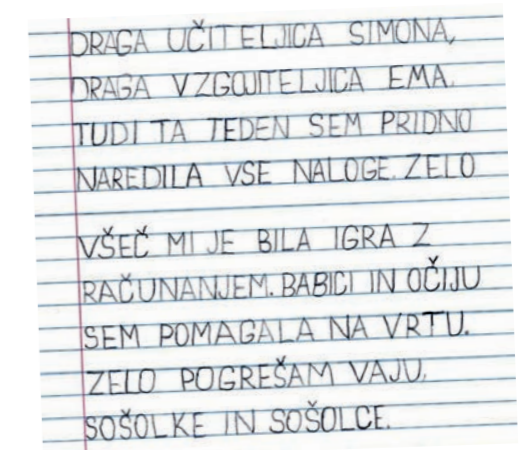 DRAGA UČITELJICA SIMONA,
DRAGA VZGOJITELJICA EMA.
TUDI TA TEDEN SEM PRIDNO
NAREDILA VSE NALOGE. ZELO
VŠEČ MI JE BILA IGRA Z
RAČUNANJEM. BABICI IN OČIJU
SEM POMAGALA NA VRTU.
ZELO POGREŠAM VAJU,
SOŠOLKE IN SOŠOLCE.